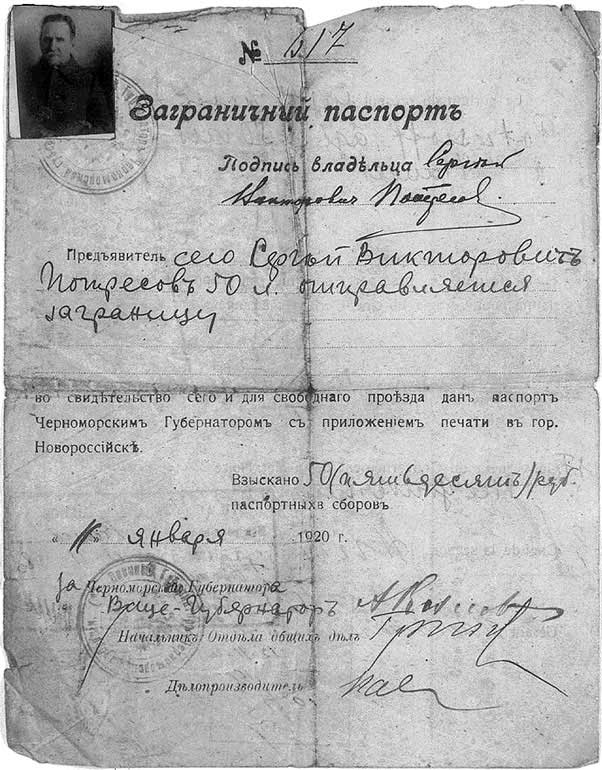 № 517
Заграничний паспортъ
Подпись владѣльца Сергѣй
Викторович Потресов.
Предъявитель сего Сергѣй Викторовичъ
Потресовъ 50 л. отправляется
заграницу
во свидѣтельство сего и для свободнаго проѣзда данъ паспортъ
Черноморскимъ Губернаторомъ съ приложеніемъ печати въ гор.
Новороссійскѣ.
Взыскано 50 (пятьдесятъ) руб.
паспортныхъ сборовъ
„11“ января 1920 г.
за Черноморскаго Губернатора
Вице-Губернаторъ
Начальникъ Отдѣла общихъ дѣлъ
Дѣлопроизводитель